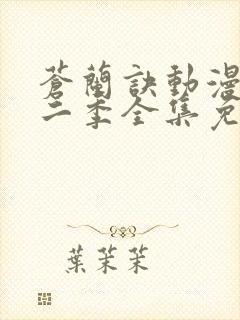 蒼蘭訣動漫
二季全集免
葉茉茉